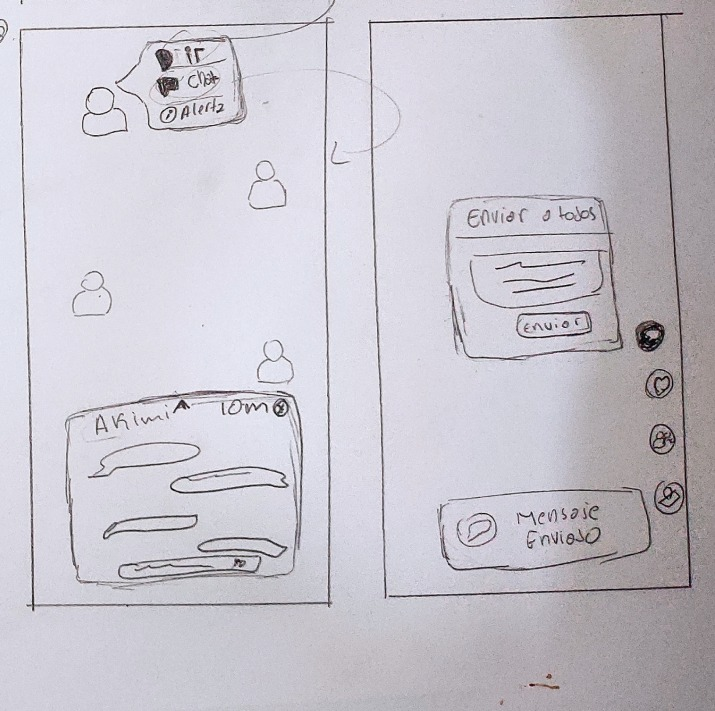 ir
Chat
Alerta
AKimi 10m
Enviar a todos
Enviar
Mensaje
Enviado